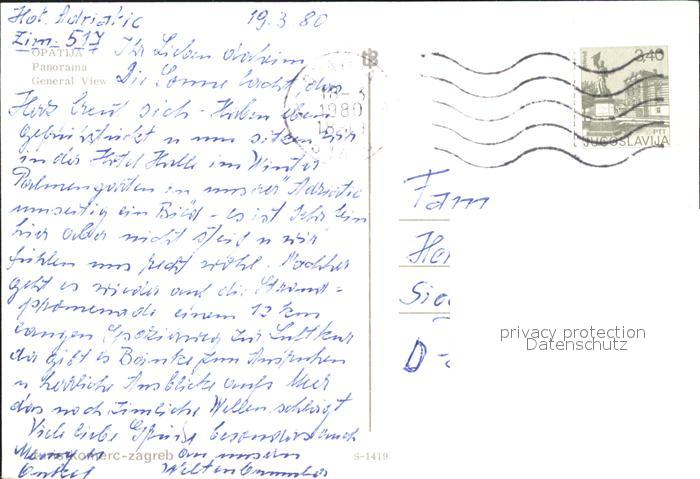 Hot. Adriatic 19.3 80
Zim. 517
OPATIJA
Panorama
General View
Ihr Lieben daheim
Die Sonne lacht, das
Herz freut sich - Haben eben
gefrühstückt u nun sitzen wir
in der Hotel Halle im Winter
Palmengarten in unserer "Adriatic
umseitig ein Bild - es ist sehr fein
hier aber nicht steif u wir
fühlen uns recht wohl. Nachher
geht es wieder auf die Strand=
promenade einem 12 km
langen Spazierweg zur Luftkur
da gibt es Bänke zum Ausruhen
u herrliche Ausblicke aufs Meer
das noch ziemliche Wellen schlägt
Viele liebe Grüsse besonders auch
an unsern
Enkel Weltenbummler
komerc-zagreb S-1419
1980
3,40
PTT
JUGOSLAVIJA
Fam
D-
privacy protection
Datenschutz